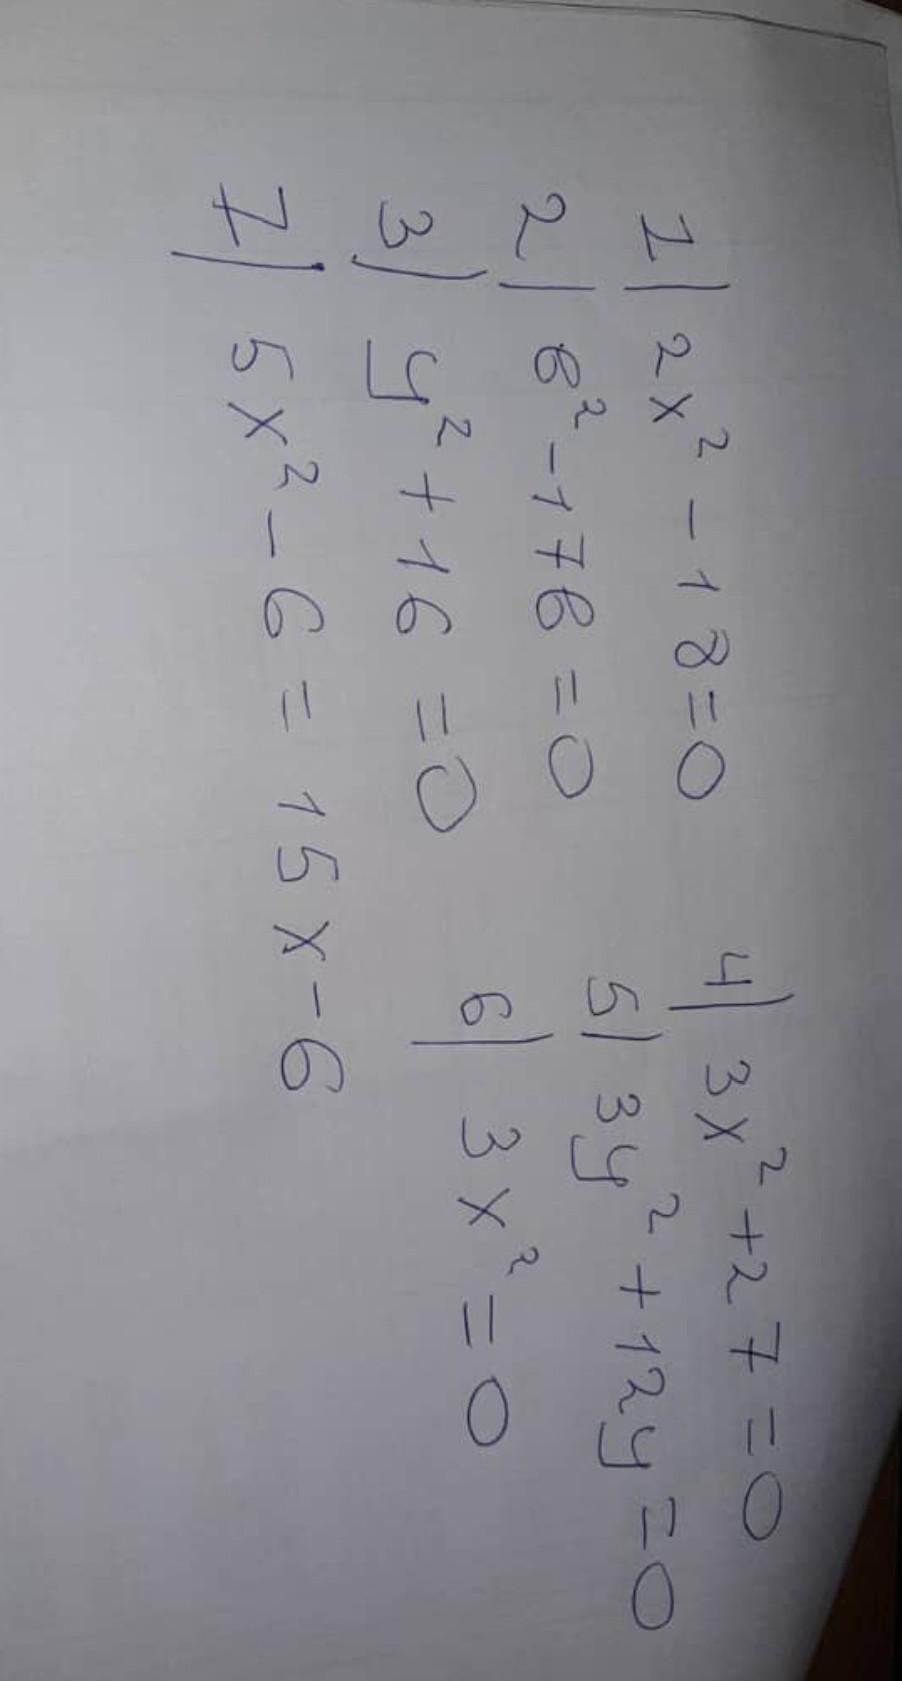 1) 2x² - 18 = 0
2) в² - 17в = 0
3) y² + 16 = 0
4) 3x² + 27 = 0
5) 3y² + 12y = 0
6) 3x² = 0
7) 5x² - 6 = 15x - 6